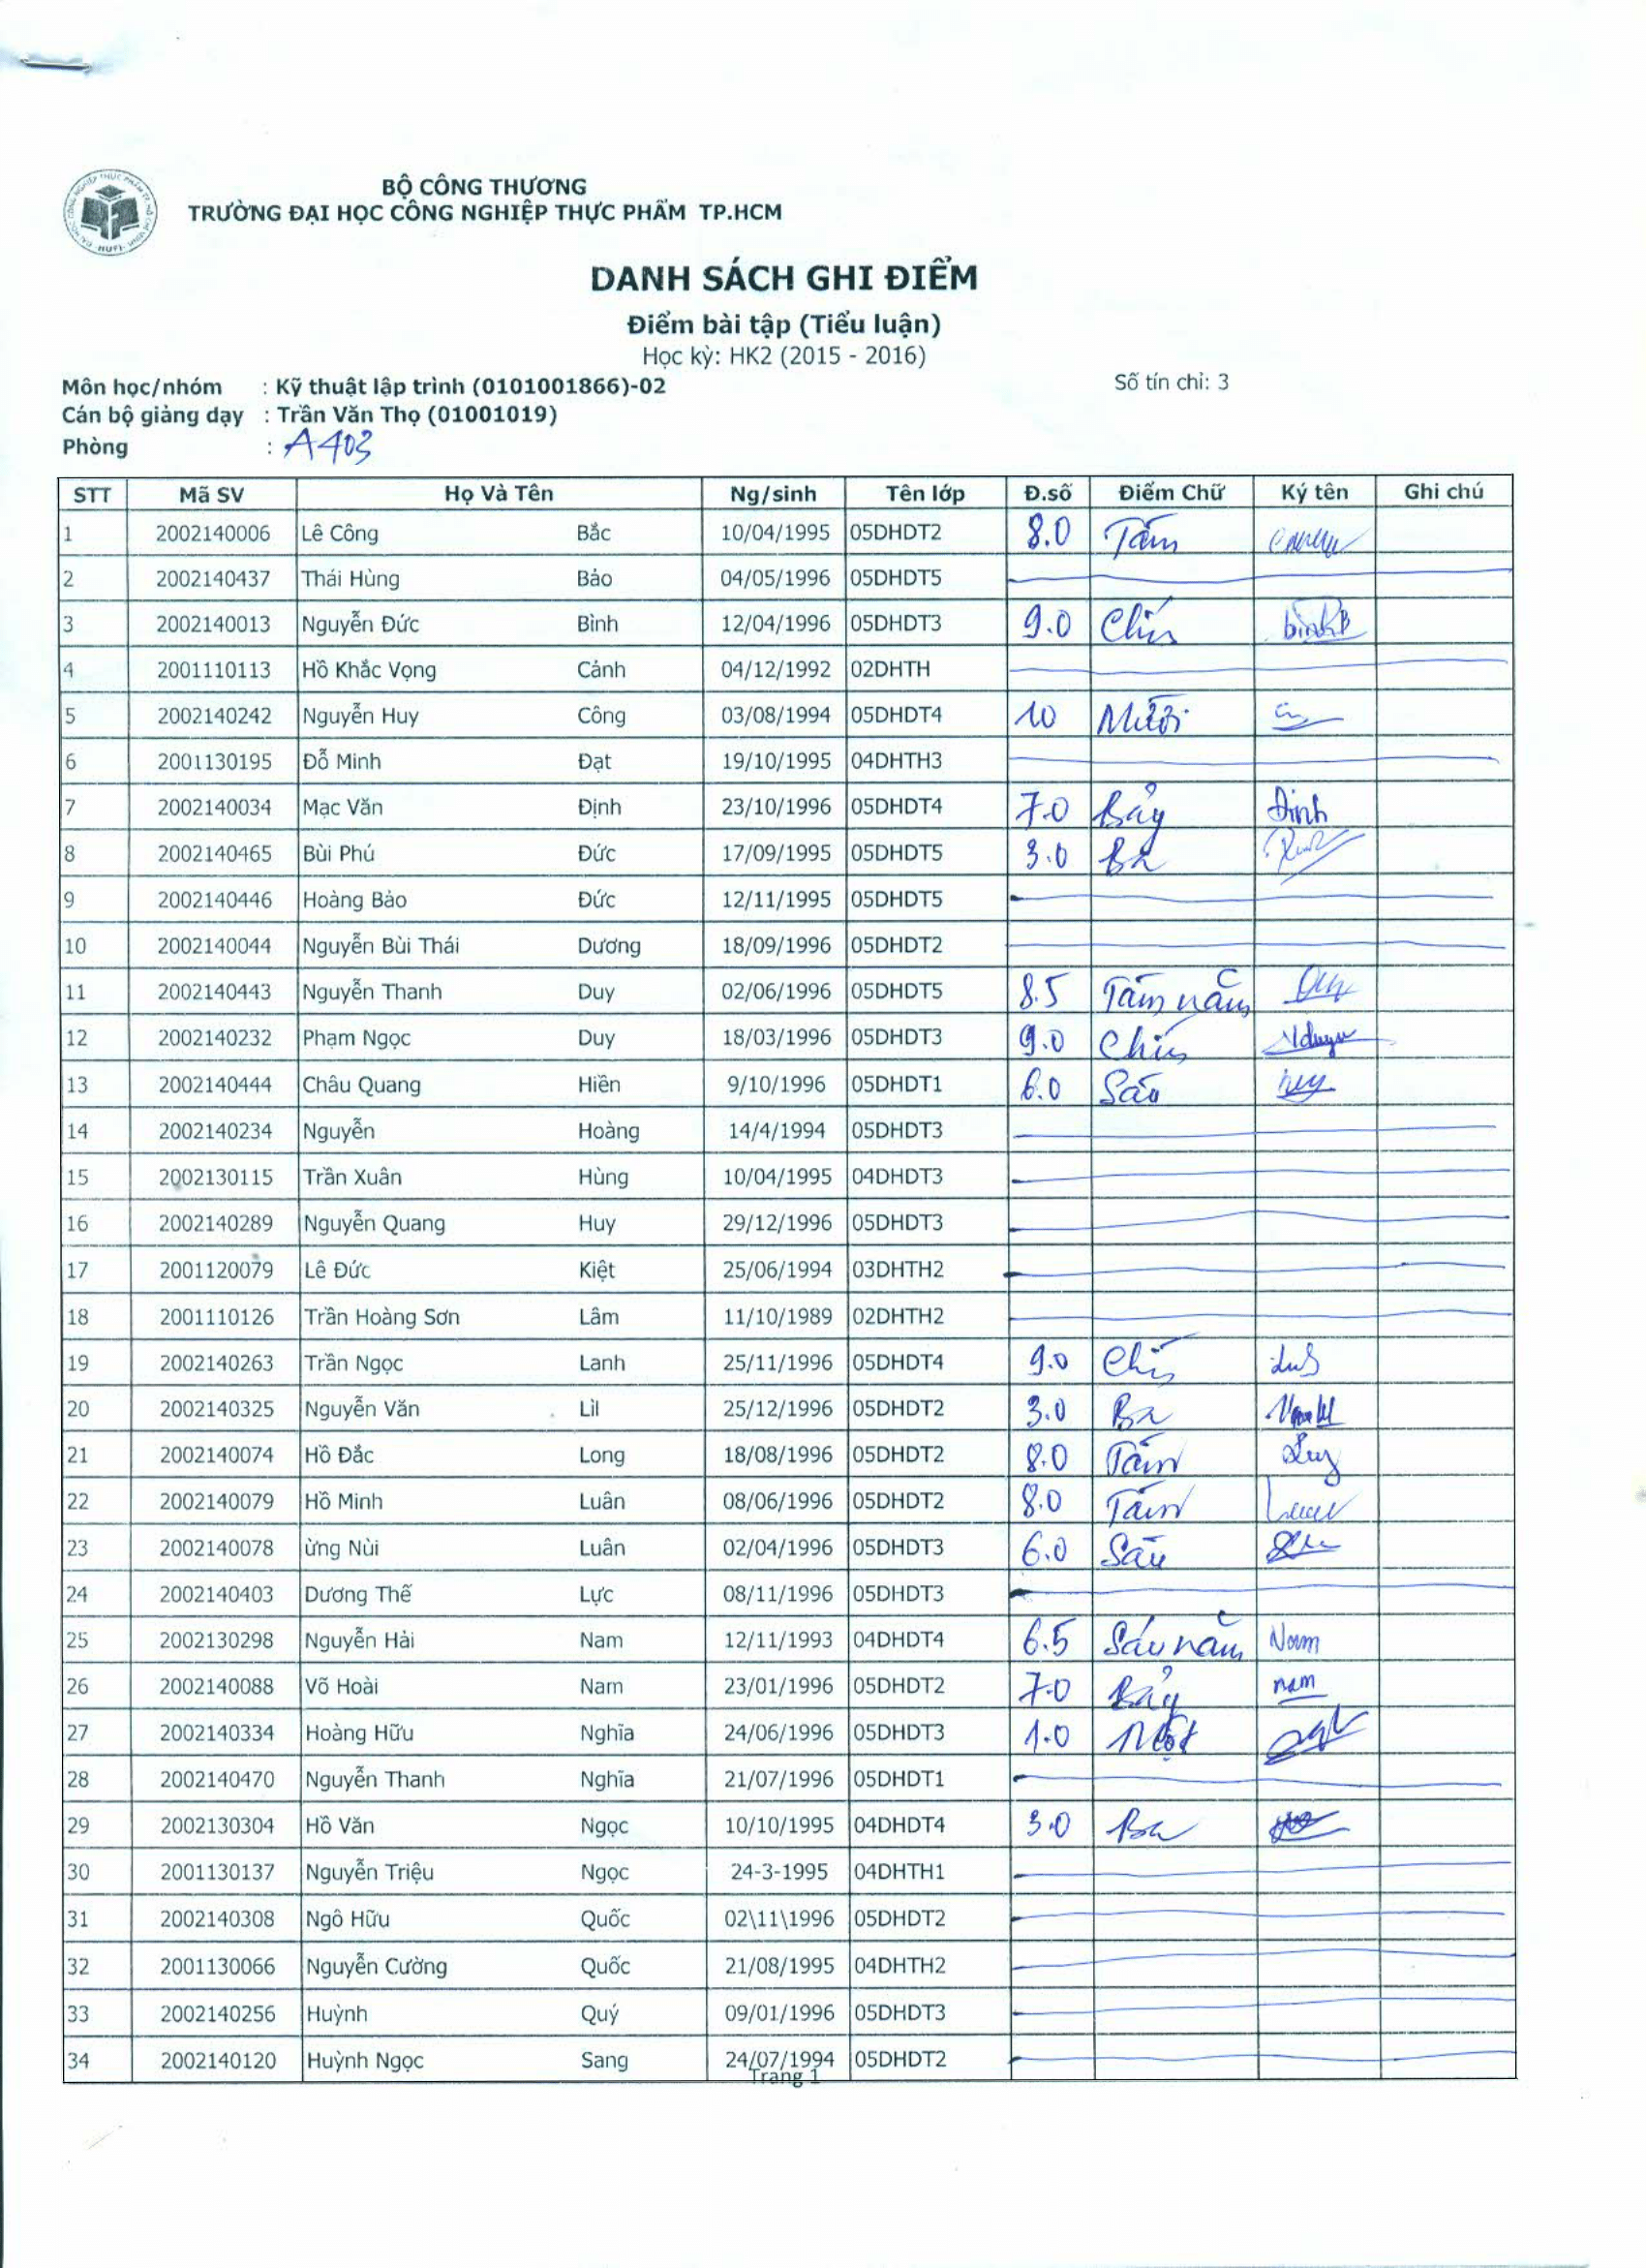 BỘ CÔNG THƯƠNG
TRƯỜNG ĐẠI HỌC CÔNG NGHIỆP THỰC PHẨM TP.HCM
DANH SÁCH GHI ĐIỂM
Điểm bài tập (Tiểu luận)
Học kỳ: HK2 (2015 - 2016)
Môn học/nhóm : Kỹ thuật lập trình (0101001866)-02 Số tín chỉ: 3
Cán bộ giảng dạy : Trần Văn Thọ (01001019)
Phòng : A403
STT Mã SV Họ Và Tên Ng/sinh Tên lớp Đ.số Điểm Chữ Ký tên Ghi chú
1 2002140006 Lê Công Bắc 10/04/1995 05DHDT2 8.0 Tám
2 2002140437 Thái Hùng Bảo 04/05/1996 05DHDT5
3 2002140013 Nguyễn Đức Bình 12/04/1996 05DHDT3 9.0 Chín
4 2001110113 Hồ Khắc Vọng Cảnh 04/12/1992 02DHTH
5 2002140242 Nguyễn Huy Công 03/08/1994 05DHDT4 10 Mười
6 2001130195 Đỗ Minh Đạt 19/10/1995 04DHTH3
7 2002140034 Mạc Văn Định 23/10/1996 05DHDT4 7.0 Bảy Định
8 2002140465 Bùi Phú Đức 17/09/1995 05DHDT5 3.0 Ba
9 2002140446 Hoàng Bảo Đức 12/11/1995 05DHDT5
10 2002140044 Nguyễn Bùi Thái Dương 18/09/1996 05DHDT2
11 2002140443 Nguyễn Thanh Duy 02/06/1996 05DHDT5 8.5 Tám năm
12 2002140232 Phạm Ngọc Duy 18/03/1996 05DHDT3 9.0 Chín
13 2002140444 Châu Quang Hiền 9/10/1996 05DHDT1 6.0 Sáu
14 2002140234 Nguyễn Hoàng 14/4/1994 05DHDT3
15 2002130115 Trần Xuân Hùng 10/04/1995 04DHDT3
16 2002140289 Nguyễn Quang Huy 29/12/1996 05DHDT3
17 2001120079 Lê Đức Kiệt 25/06/1994 03DHTH2
18 2001110126 Trần Hoàng Sơn Lâm 11/10/1989 02DHTH2
19 2002140263 Trần Ngọc Lanh 25/11/1996 05DHDT4 9.0 Chín
20 2002140325 Nguyễn Văn Lìl 25/12/1996 05DHDT2 3.0 Ba
21 2002140074 Hồ Đắc Long 18/08/1996 05DHDT2 8.0 Tám
22 2002140079 Hồ Minh Luân 08/06/1996 05DHDT2 8.0 Tám
23 2002140078 ừng Nùi Luân 02/04/1996 05DHDT3 6.0 Sáu
24 2002140403 Dương Thế Lực 08/11/1996 05DHDT3
25 2002130298 Nguyễn Hải Nam 12/11/1993 04DHDT4 6.5 Sáu năm Nam
26 2002140088 Võ Hoài Nam 23/01/1996 05DHDT2 7.0 Bảy nam
27 2002140334 Hoàng Hữu Nghĩa 24/06/1996 05DHDT3 1.0 Một
28 2002140470 Nguyễn Thanh Nghĩa 21/07/1996 05DHDT1
29 2002130304 Hồ Văn Ngọc 10/10/1995 04DHDT4 3.0 Ba
30 2001130137 Nguyễn Triệu Ngọc 24-3-1995 04DHTH1
31 2002140308 Ngô Hữu Quốc 02\11\1996 05DHDT2
32 2001130066 Nguyễn Cường Quốc 21/08/1995 04DHTH2
33 2002140256 Huỳnh Quý 09/01/1996 05DHDT3
34 2002140120 Huỳnh Ngọc Sang 24/07/1994 05DHDT2
Trang 1